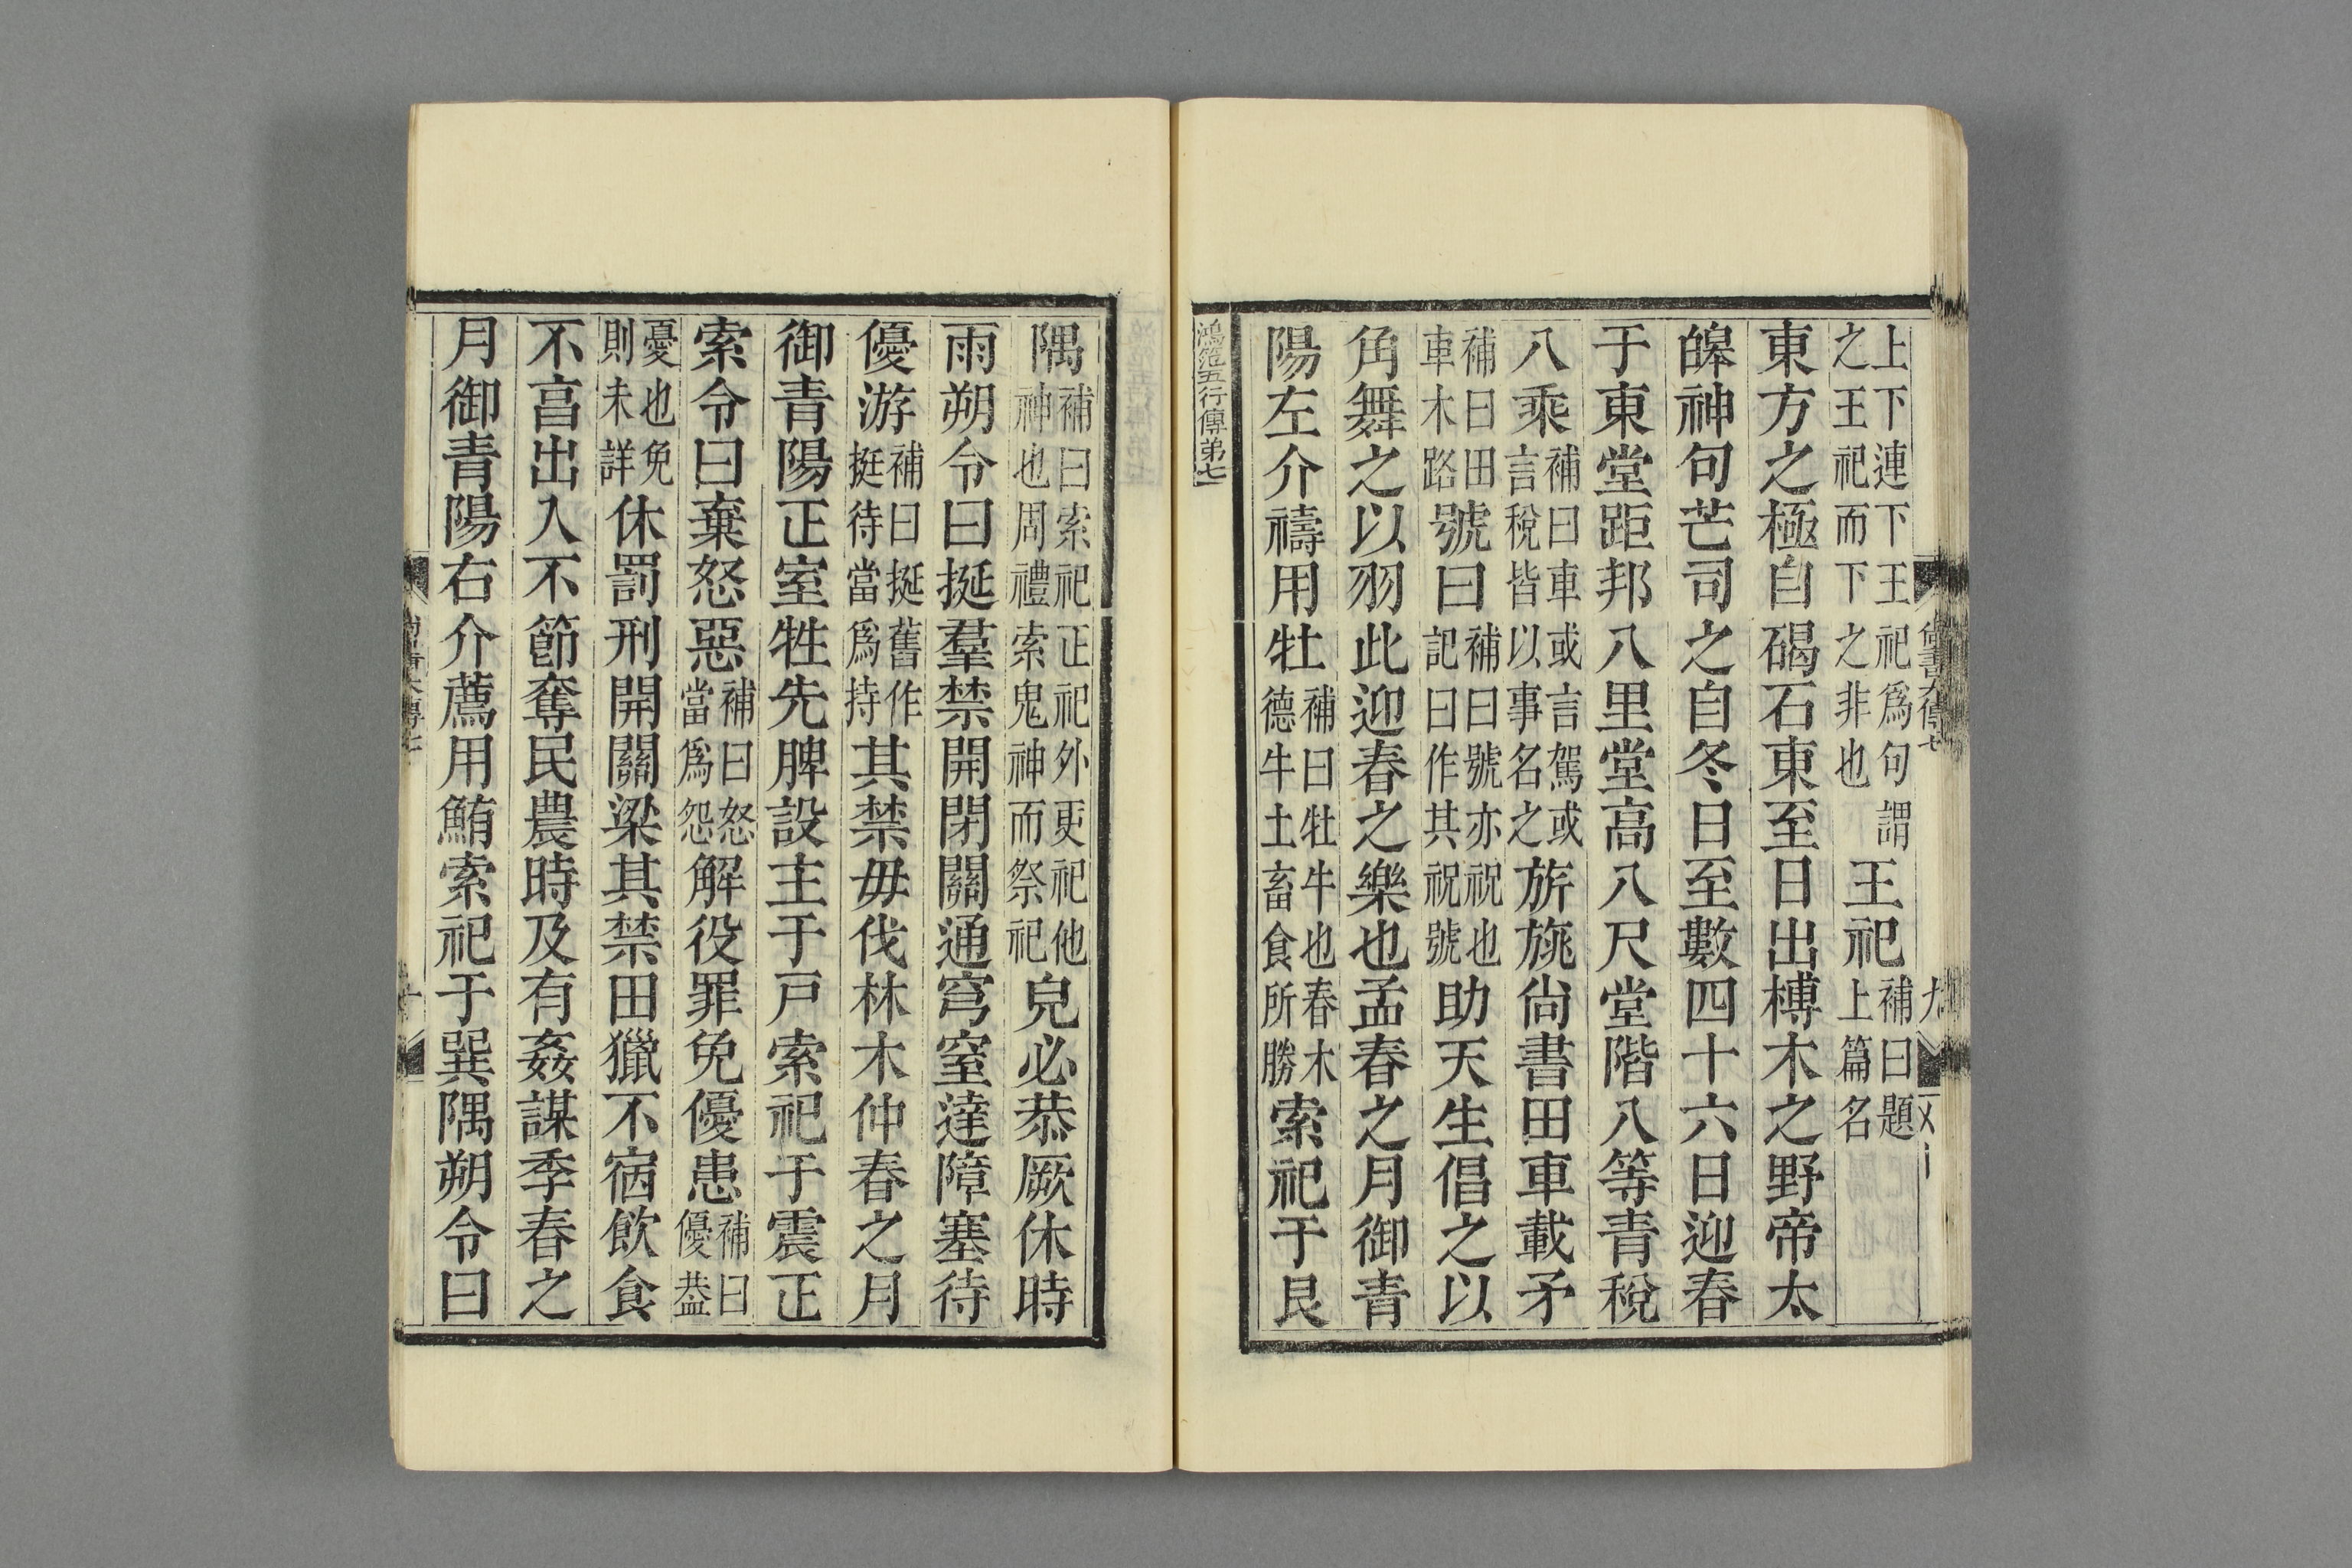 尙書大傳七
九
上下連下王祀爲句謂之王祀而下之非也王祀補曰題上篇名
東方之極自碣石東至日出榑木之野帝太
皞神句芒司之自冬日至數四十六日迎春
于東堂距邦八里堂高八尺堂階八等青稅
八乘補曰車或言駕或言稅皆以事名之旂旐尙書田車載矛
補曰田車木路號曰補曰號亦祝也記曰作其祝號助天生倡之以
角舞之以羽此迎春之樂也孟春之月御青
陽左介禱用牡補曰牡牛也春木德牛土畜食所勝索祀于艮
鴻範五行傳弟七
隅補曰索祀正祀外更祀他神也周禮索鬼神而祭祀皃必恭厥休時
雨朔令曰挻羣禁開閉關通穹窒達障塞待
優游補曰挻舊作挺待當爲持其禁毋伐林木仲春之月
御青陽正室牲先脾設主于戸索祀于震正
索令曰棄怒惡補曰怒當爲怨解役罪免優患補曰優葢
憂也免則未詳休罰刑開關梁其禁田獵不宿飮食
不亯出入不節奪民農時及有姦謀季春之
月御青陽右介薦用鮪索祀于巽隅朔令曰